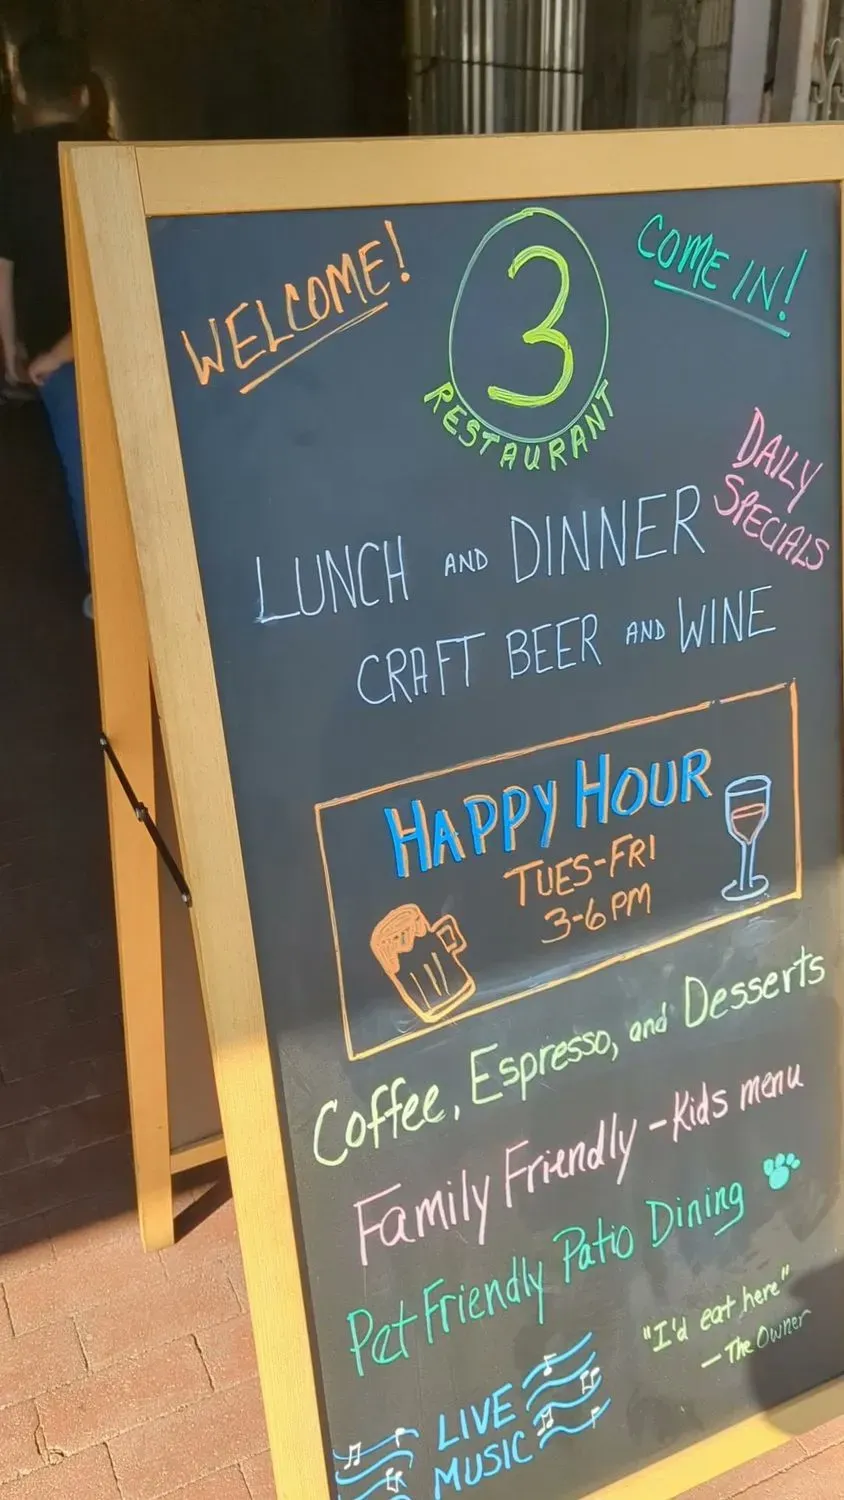 WELCOME!
COME IN!
3
RESTAURANT
DAILY
SPECIALS
LUNCH AND DINNER
CRAFT BEER AND WINE
HAPPY HOUR
TUES-FRI
3-6 PM
Coffee, Espresso, and Desserts
Family Friendly - Kids menu
Pet Friendly Patio Dining
"I'd eat here"
- The Owner
LIVE
MUSIC